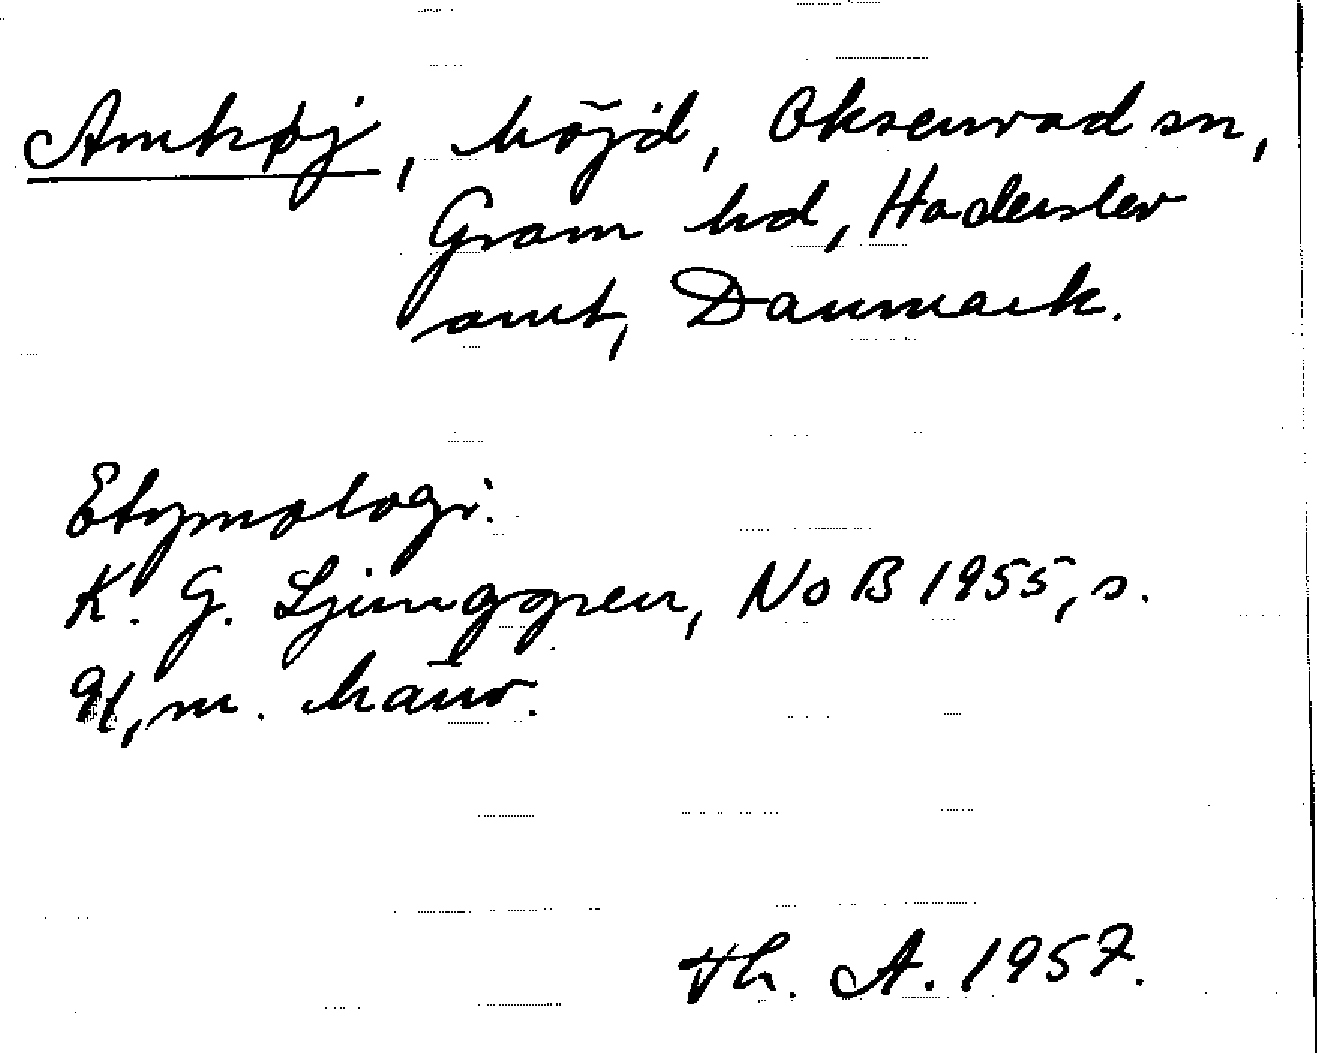 Amhøj, höjd, Oksenvad sn,
Gram hd, Haderslev
amt, Danmark.
Etymologi:
K. G. Ljunggren, NoB 1955, s.
91, m. hänv.
Th. A. 1957.